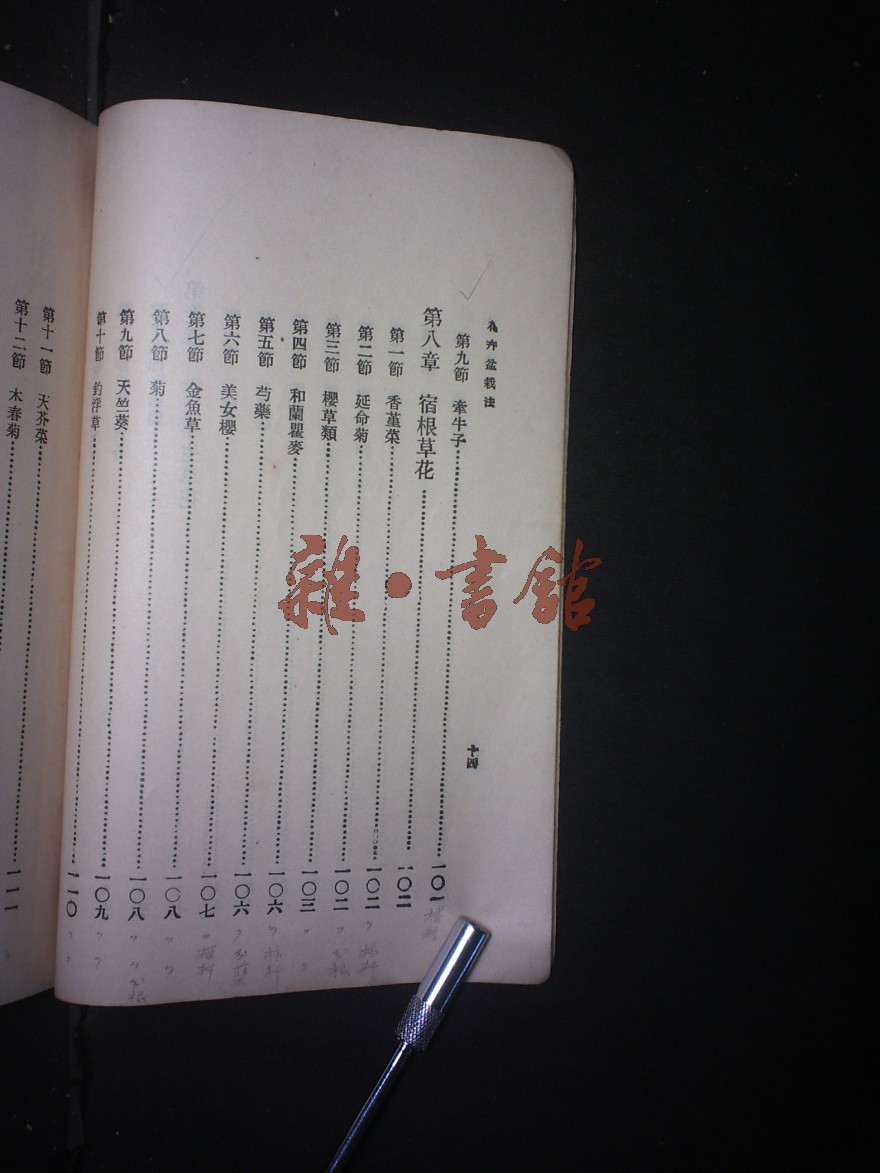 花卉盆栽法
十四
第九節 牽牛子 一〇一
第八章 宿根草花 一〇二
第一節 香堇菜 一〇二
第二節 延命菊 一〇二
第三節 櫻草類 一〇三
第四節 和蘭瞿麥 一〇六
第五節 芍藥 一〇六
第六節 美女櫻 一〇七
第七節 金魚草 一〇八
第八節 菊 一〇八
第九節 天竺葵 一〇九
第十節 釣浮草 一一〇
第十一節 天芥菜 一一一
第十二節 木春菊
雜·書館